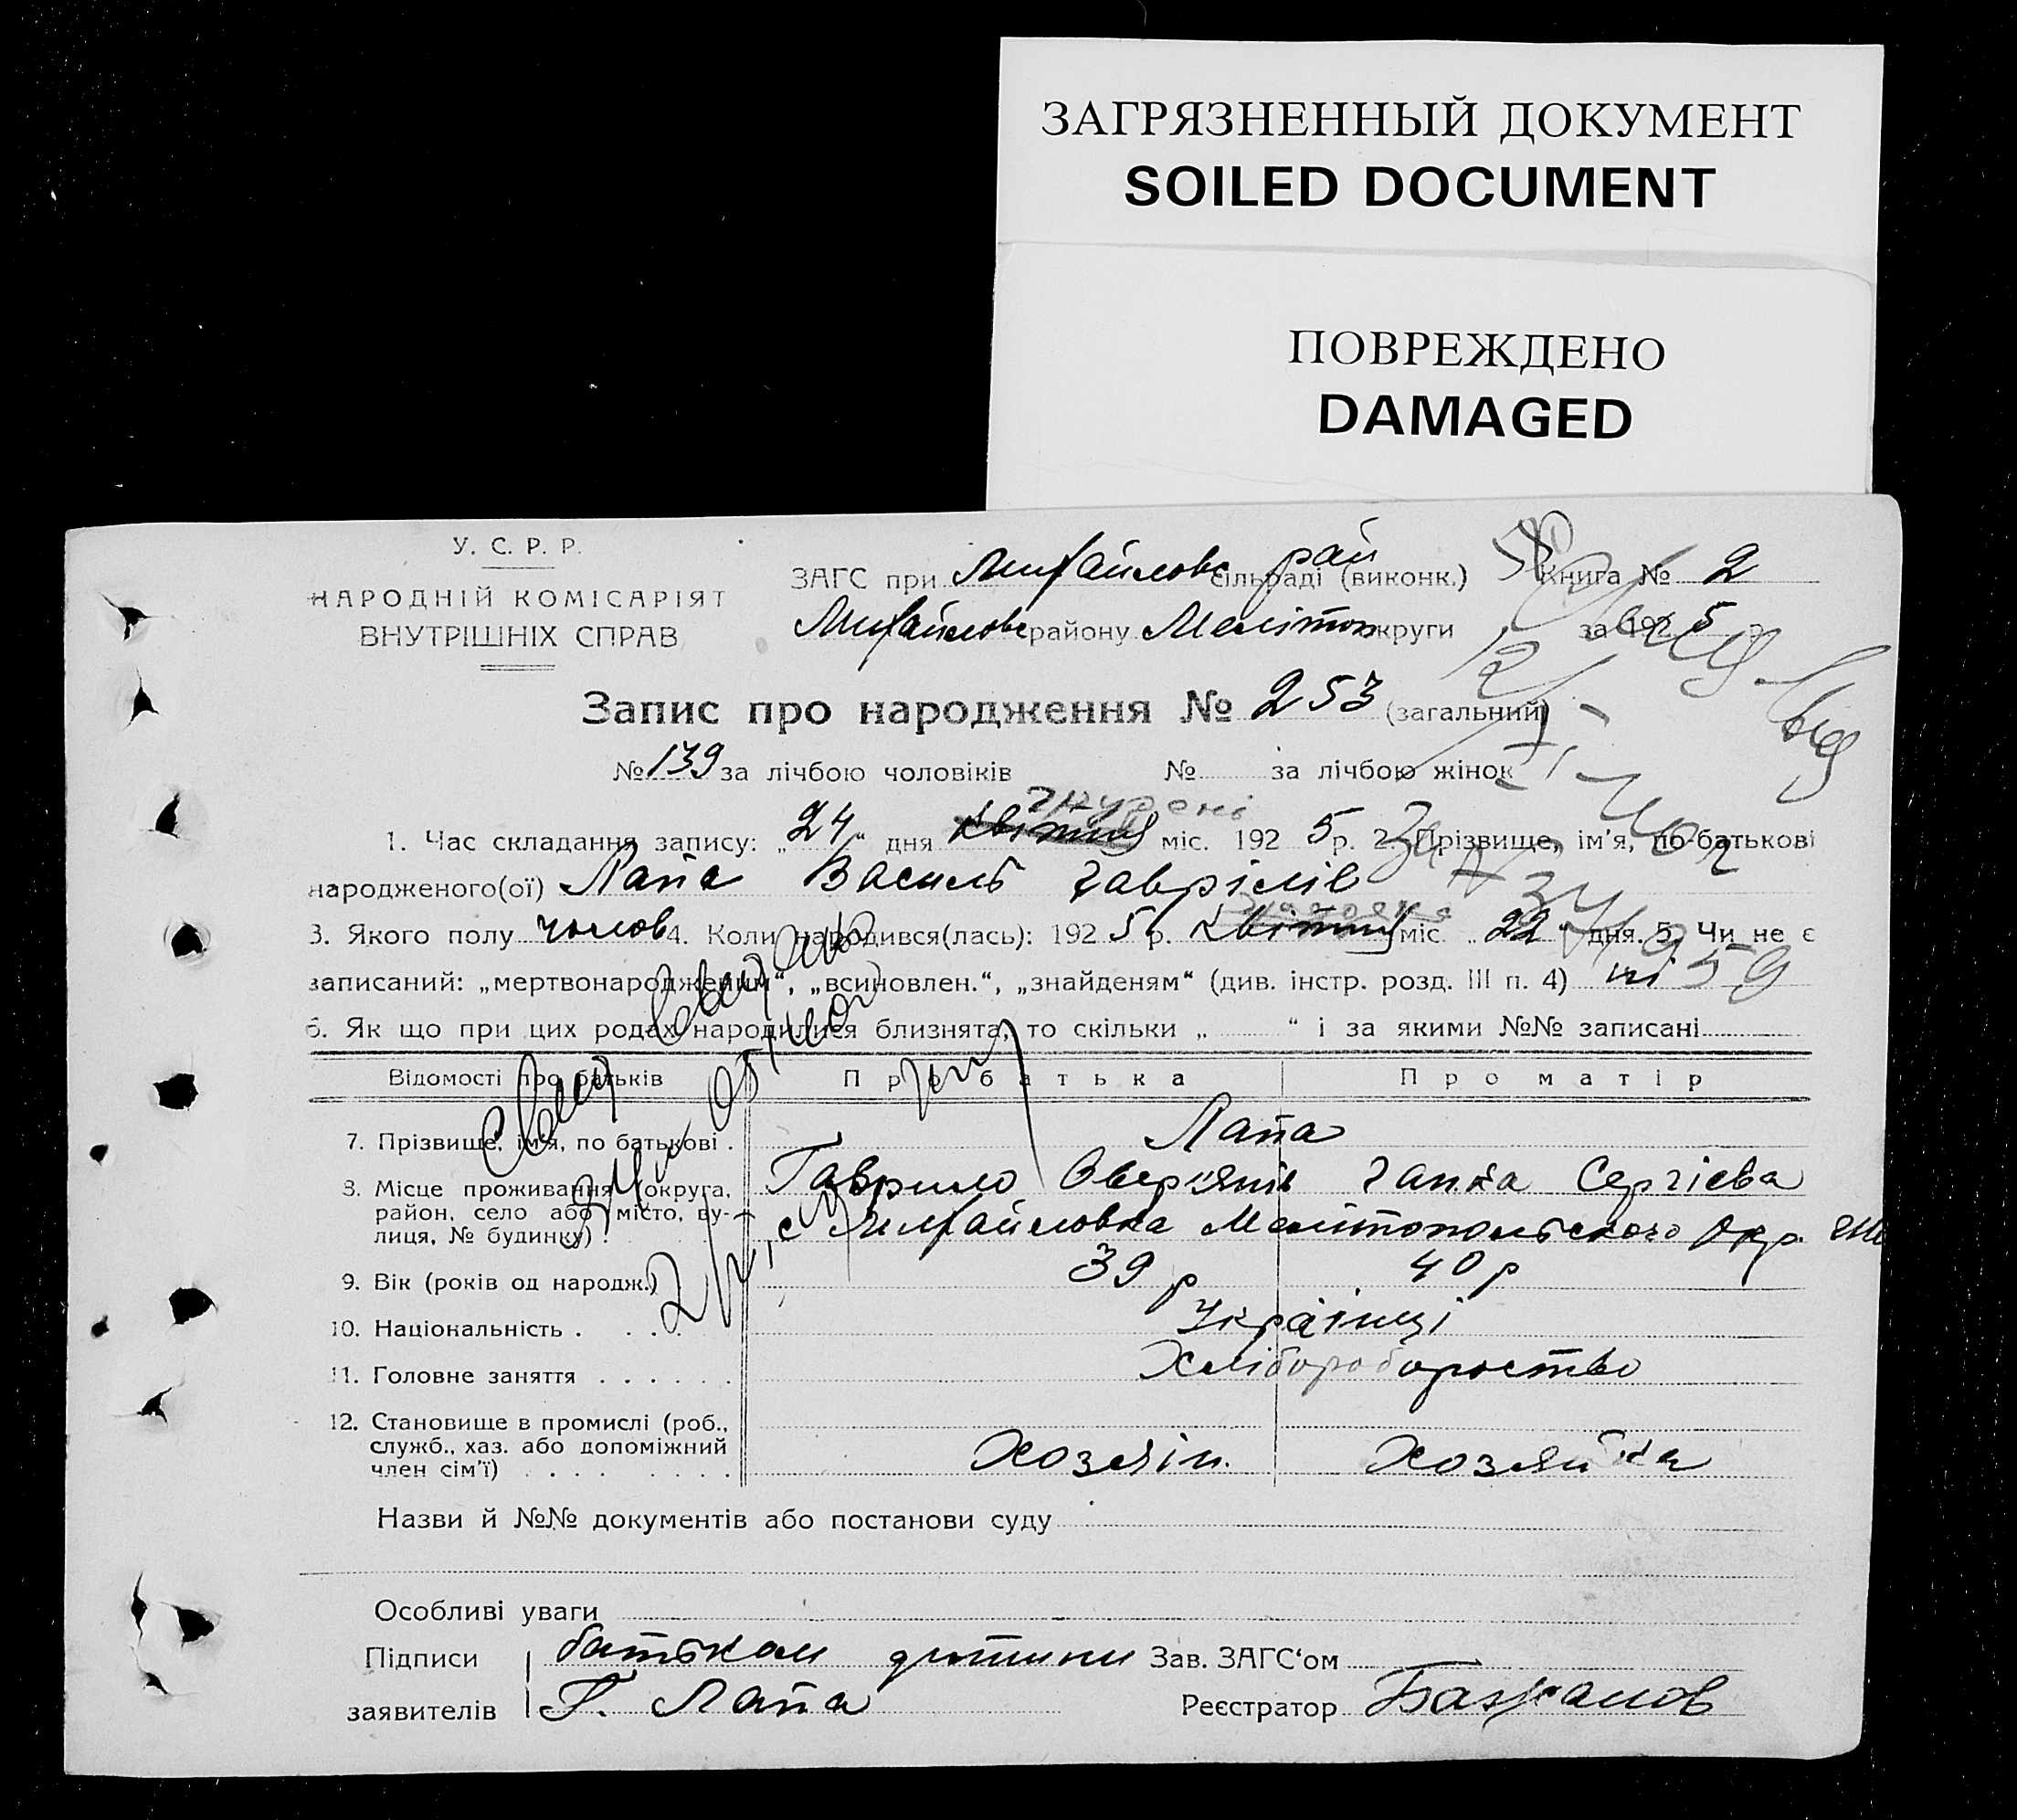 ЗАГРЯЗНЕННЫЙ ДОКУМЕНТ
SOILED DOCUMENT
ПОВРЕЖДЕНО
DAMAGED
У. С. Р. Р.
НАРОДНІЙ КОМІСАРІЯТ
ВНУТРІШНІХ СПРАВ
ЗАГС при Михайловс рай сільраді (виконк.) Книга № 2
Михайловс району Мелітоп округи за 1925 р.
Запис про народження № 253 (загальний)
№ 139 за лічбою чоловіків № за лічбою жінок
1. Час складання запису: „24“ дня квітня міс. 1925 р. 2. Прізвище, ім'я, по-батькові
народженого(ої) Лапа Василь Гаврілів
3. Якого полу чолов 4. Коли народився(лась): 1925 р. квітня міс. „22“ дня. 5. Чи не є
записаний: „мертвонародженим“, „всиновлен.“, „знайденям“ (див. інстр. розд. III п. 4) ні
6. Як що при цих родах народилися близнята, то скільки „ “ і за якими №№ записані
Відомості про батьків Про батька Про матір
7. Прізвище, ім'я, по батькові . Лапа
Гаврило Оверкянів Ганна Сергієва
8. Місце проживання (округа, район, село або місто, вулиця, № будинку) . с Михайловка Мелітопольского Окр.
9. Вік (років од народж.) 39 р 40 р
10. Національність . . . . Українці
11. Головне заняття . . . . . . Хлібороборство
12. Становище в промислі (роб.,
служб., хаз. або допоміжний
член сім'ї) . . . . . . . . . Хозяін. Хозяйка
Назви й №№ документів або постанови суду
Особливі уваги
Підписи батьком дитини Зав. ЗАГС'ом
заявителів Г. Лапа Реєстратор Бажанов